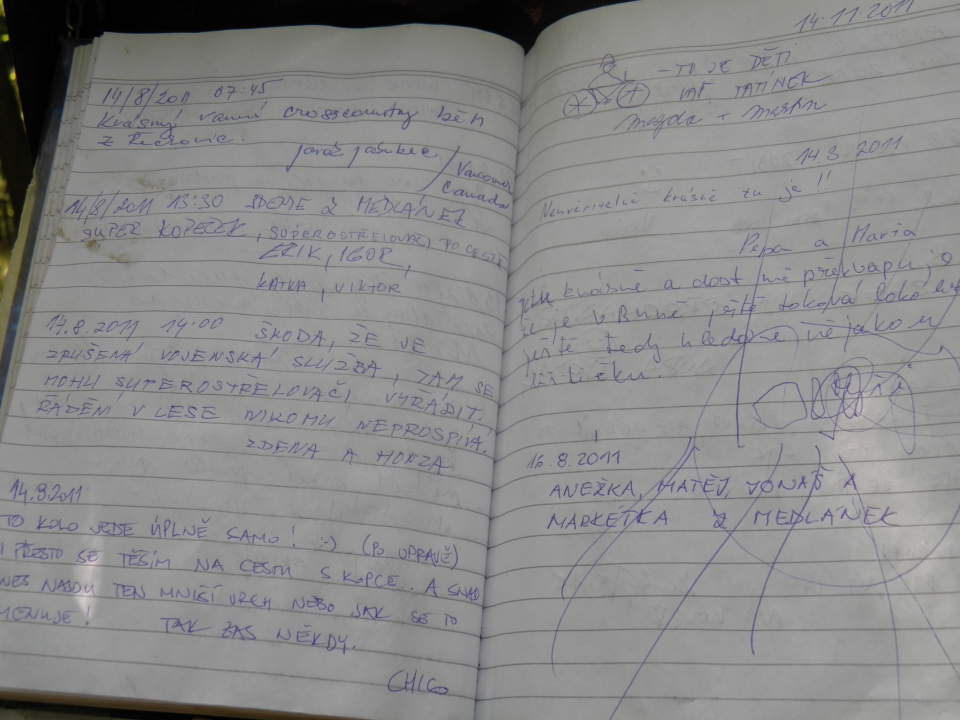 14/8/2011 07:45
Krásný ranní crosscountry běh
z Řečkovic.
/Vancouver
Canada
14/8/2011 13:30 JDEME Z MEDLÁNEK
SUPER KOPEČEK, SUPEROSTŘELOVAČI PO CESTĚ
ERIK, IGOR,
KATKA, VIKTOR
14.8.2011 14:00 ŠKODA, ŽE JE
ZRUŠENÁ VOJENSKÁ SLUŽBA, TAM SE
MOHU SUPEROSTŘELOVAČI VYŘÁDIT.
ŘÁDĚNÍ V LESE NIKOMU NEPROSPÍVÁ.
ZDENA A HONZA
14.8.2011
TO KOLO JEDE ÚPLNĚ SAMO! :-) (PO OPRAVĚ)
I PŘESTO SE TĚŠÍM NA CESTU S KOPCE. A SNAD
NAJDU TEN MNIŠÍ VRCH NEBO JAK SE TO
JMENUJE! TAK ZAS NĚKDY.
CHICO
14.11.2011
- TO JE DĚTI
VÁŠ TATÍNEK
Magda + Martin
14.8.2011
Neuvěřitelně krásně tu je!!
Pepa a Maria
krásně a dost mě překvapuje,
že je v Brně ještě taková lokalita
ještě tedy hledáme nějakou
lištičku.
16.8.2011
ANEŽKA, MATĚJ, JONÁŠ A
MARKÉTKA Z MEDLÁNEK